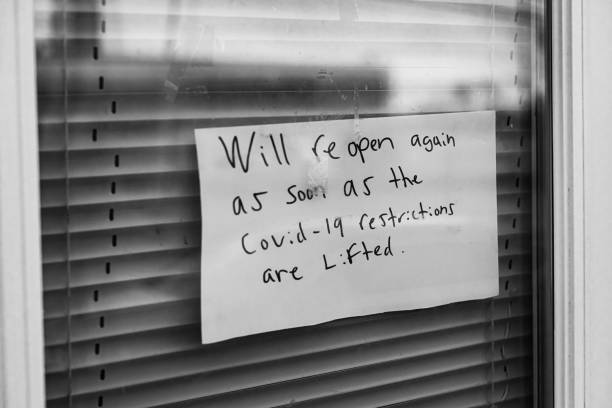 Will reopen again
as soon as the
Covid-19 restrictions
are Lifted.